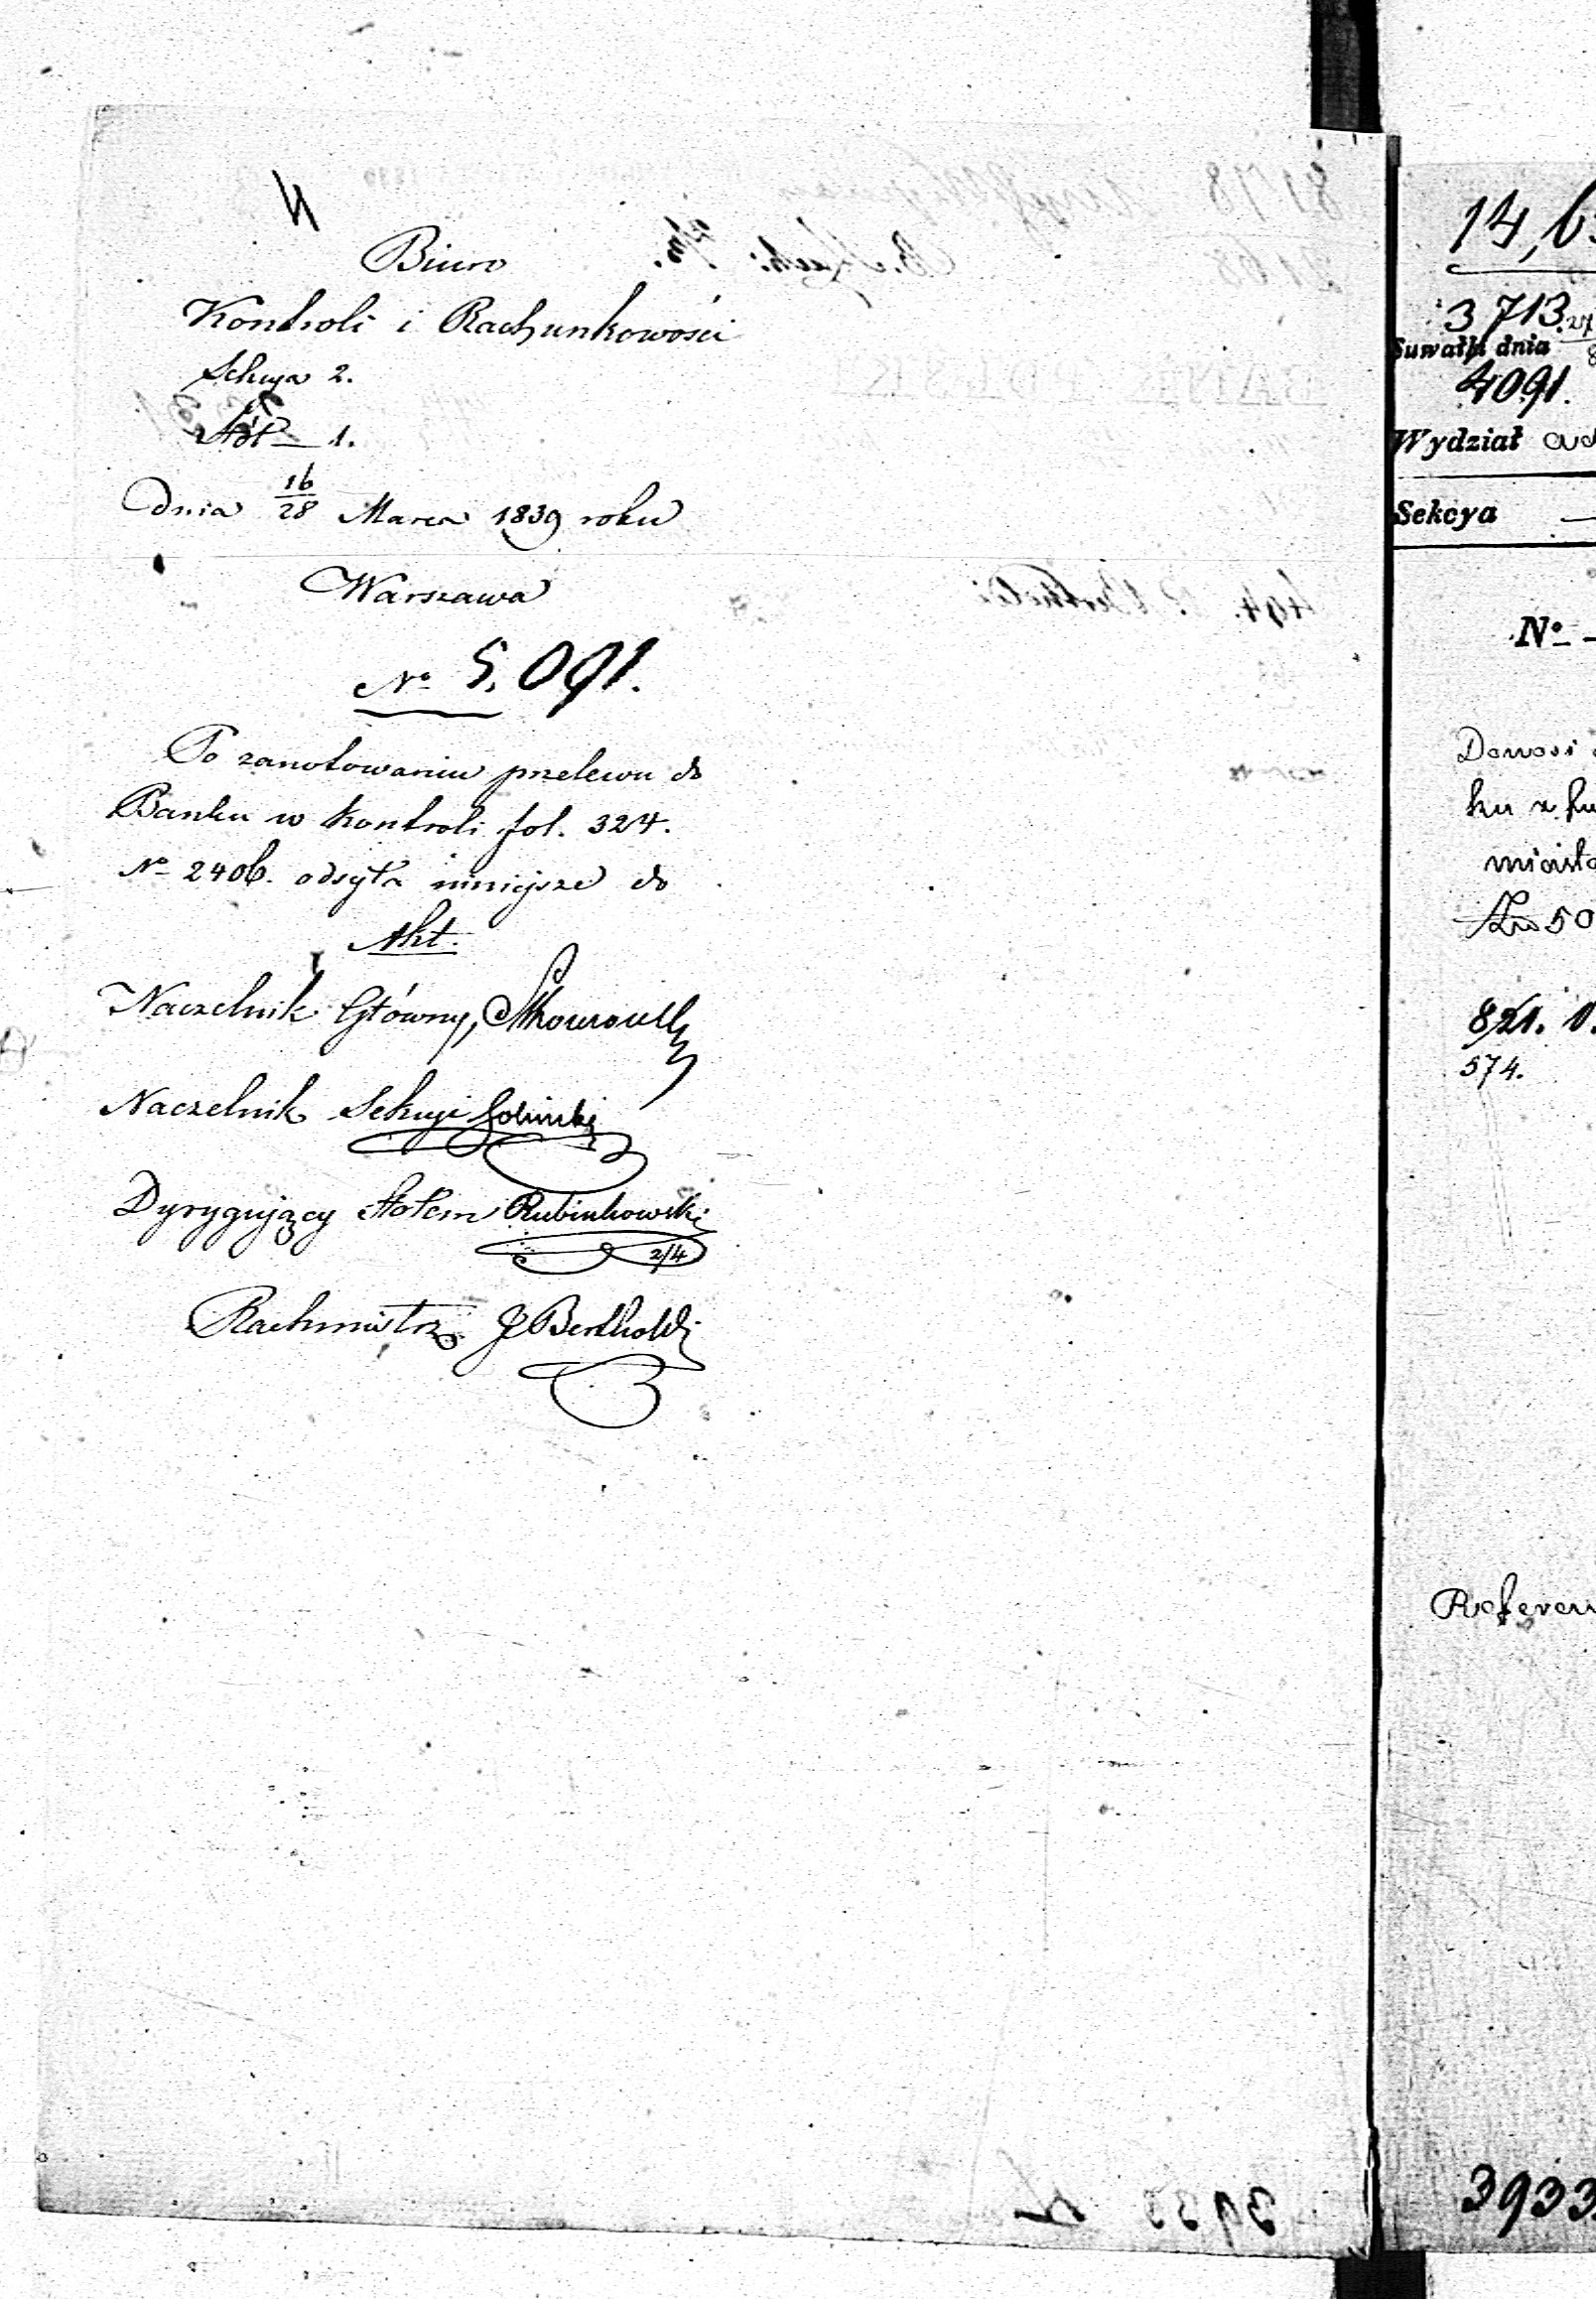 Biuro
Kontroli i Rachunkowości
Sekcya 2.
Stół 1.
Dnia 16/28 Marca 1839 roku
Warszawa
No 5,091.
Po zanotowaniu przelewu do
Banku w kontroli fol. 324.
No 2406. odsyła niniejsze do
Akt.
Naczelnik Główny,
Naczelnik Sekcyi
Dyrygujący stołem Rubinkowski
2/4
Rachmistrz J Bertholdi
14,6
3713.
Suwałki dnia 27/8
4091.
Wydział ad
Sekcya
No
Donosi
ku z fu
miasta
50
821.
574.
Referen
3933